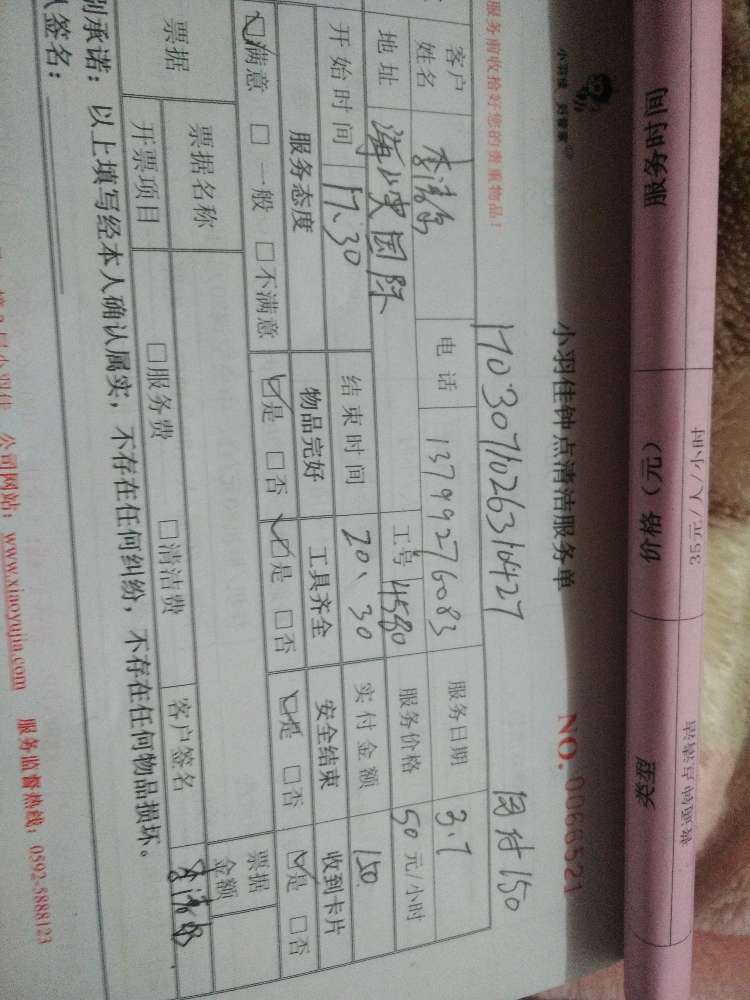 服务时间 价格（元） 类型
35元/人/小时 普通钟点清洁
小羽佳 好管家
小羽佳钟点清洁服务单 NO. 0066521
服务前收拾好您的贵重物品！
17030710263110427 团付150
客户姓名 电话 13799276083 服务日期 3.7
地址 海山奥国际 工号 4580 服务价格 50元/小时
开始时间 17、30 结束时间 20、30 实付金额 150
服务态度 物品完好 工具齐全 安全结束 收到卡片
☑满意 □一般 □不满意 ☑是 □否 ☑是 □否 ☑是 □否 ☑是 □否
票据 票据名称 票据金额
开票项目 □服务费 □清洁费 客户签名
别承诺：以上填写经本人确认属实，不存在任何纠纷，不存在任何物品损坏。
人签名：
公司网站：www.xiaoyujia.com 服务监督热线：0592-5888123